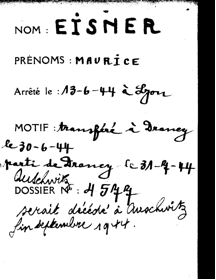 NOM : EISNER
PRÉNOMS : MAURICE
Arrêté le : 13-6-44 à Lyon
MOTIF : transféré à Drancy
le 30-6-44
parti de Drancy le 31-7-44
Auschwitz
DOSSIER N° : 4577
serait décédé à Auschwitz
fin septembre 1944.